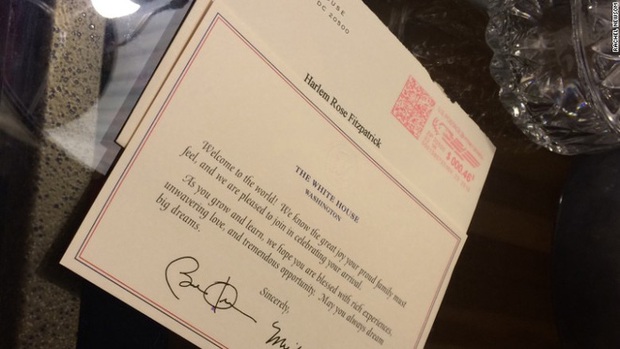 USE
DC 20500
Harlem Rose Fitzpatrick
$ 000.48
THE WHITE HOUSE
WASHINGTON
Welcome to the world! We know the great joy your proud family must
feel, and we are pleased to join in celebrating your arrival.
As you grow and learn, we hope you are blessed with rich experiences,
unwavering love, and tremendous opportunity. May you always dream
big dreams.
Sincerely,
RACHEL NEWSOM